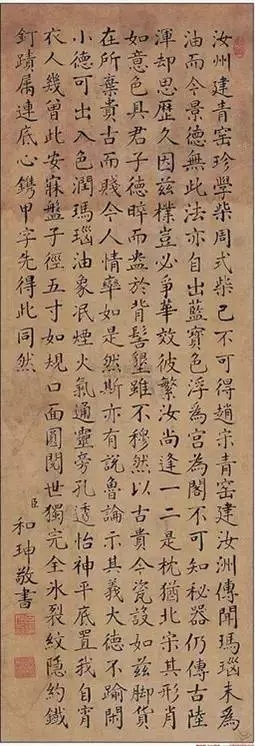 汝州建青窑珍學柴周式柴已不可得趙宋青窑建汝洲傳聞瑪瑙末為
油而今景德無此法亦自出藍寶色浮為宮為閣不可知秘器仍傳古陸
渾却思歷久因兹樸豈必爭華效彼繁汝尚逢一二是枕猶北宋其形肖
如意色具君子德晬而盎於背髻墾雖不穆然以古貴今瓷設如兹脚貨
在所棄貴古而賤今人情率如是然斯亦有說魯論示其義大德不踰閑
小德可出入色潤瑪瑙油象泯煙火氣通靈旁孔透怡神平底置我自宵
衣人幾曾此安寐盤子徑五寸如規口面圓閱世獨完全氷裂紋隱約鐵
釘蹟属連底心鐫甲字先得此同然
臣和珅敬書